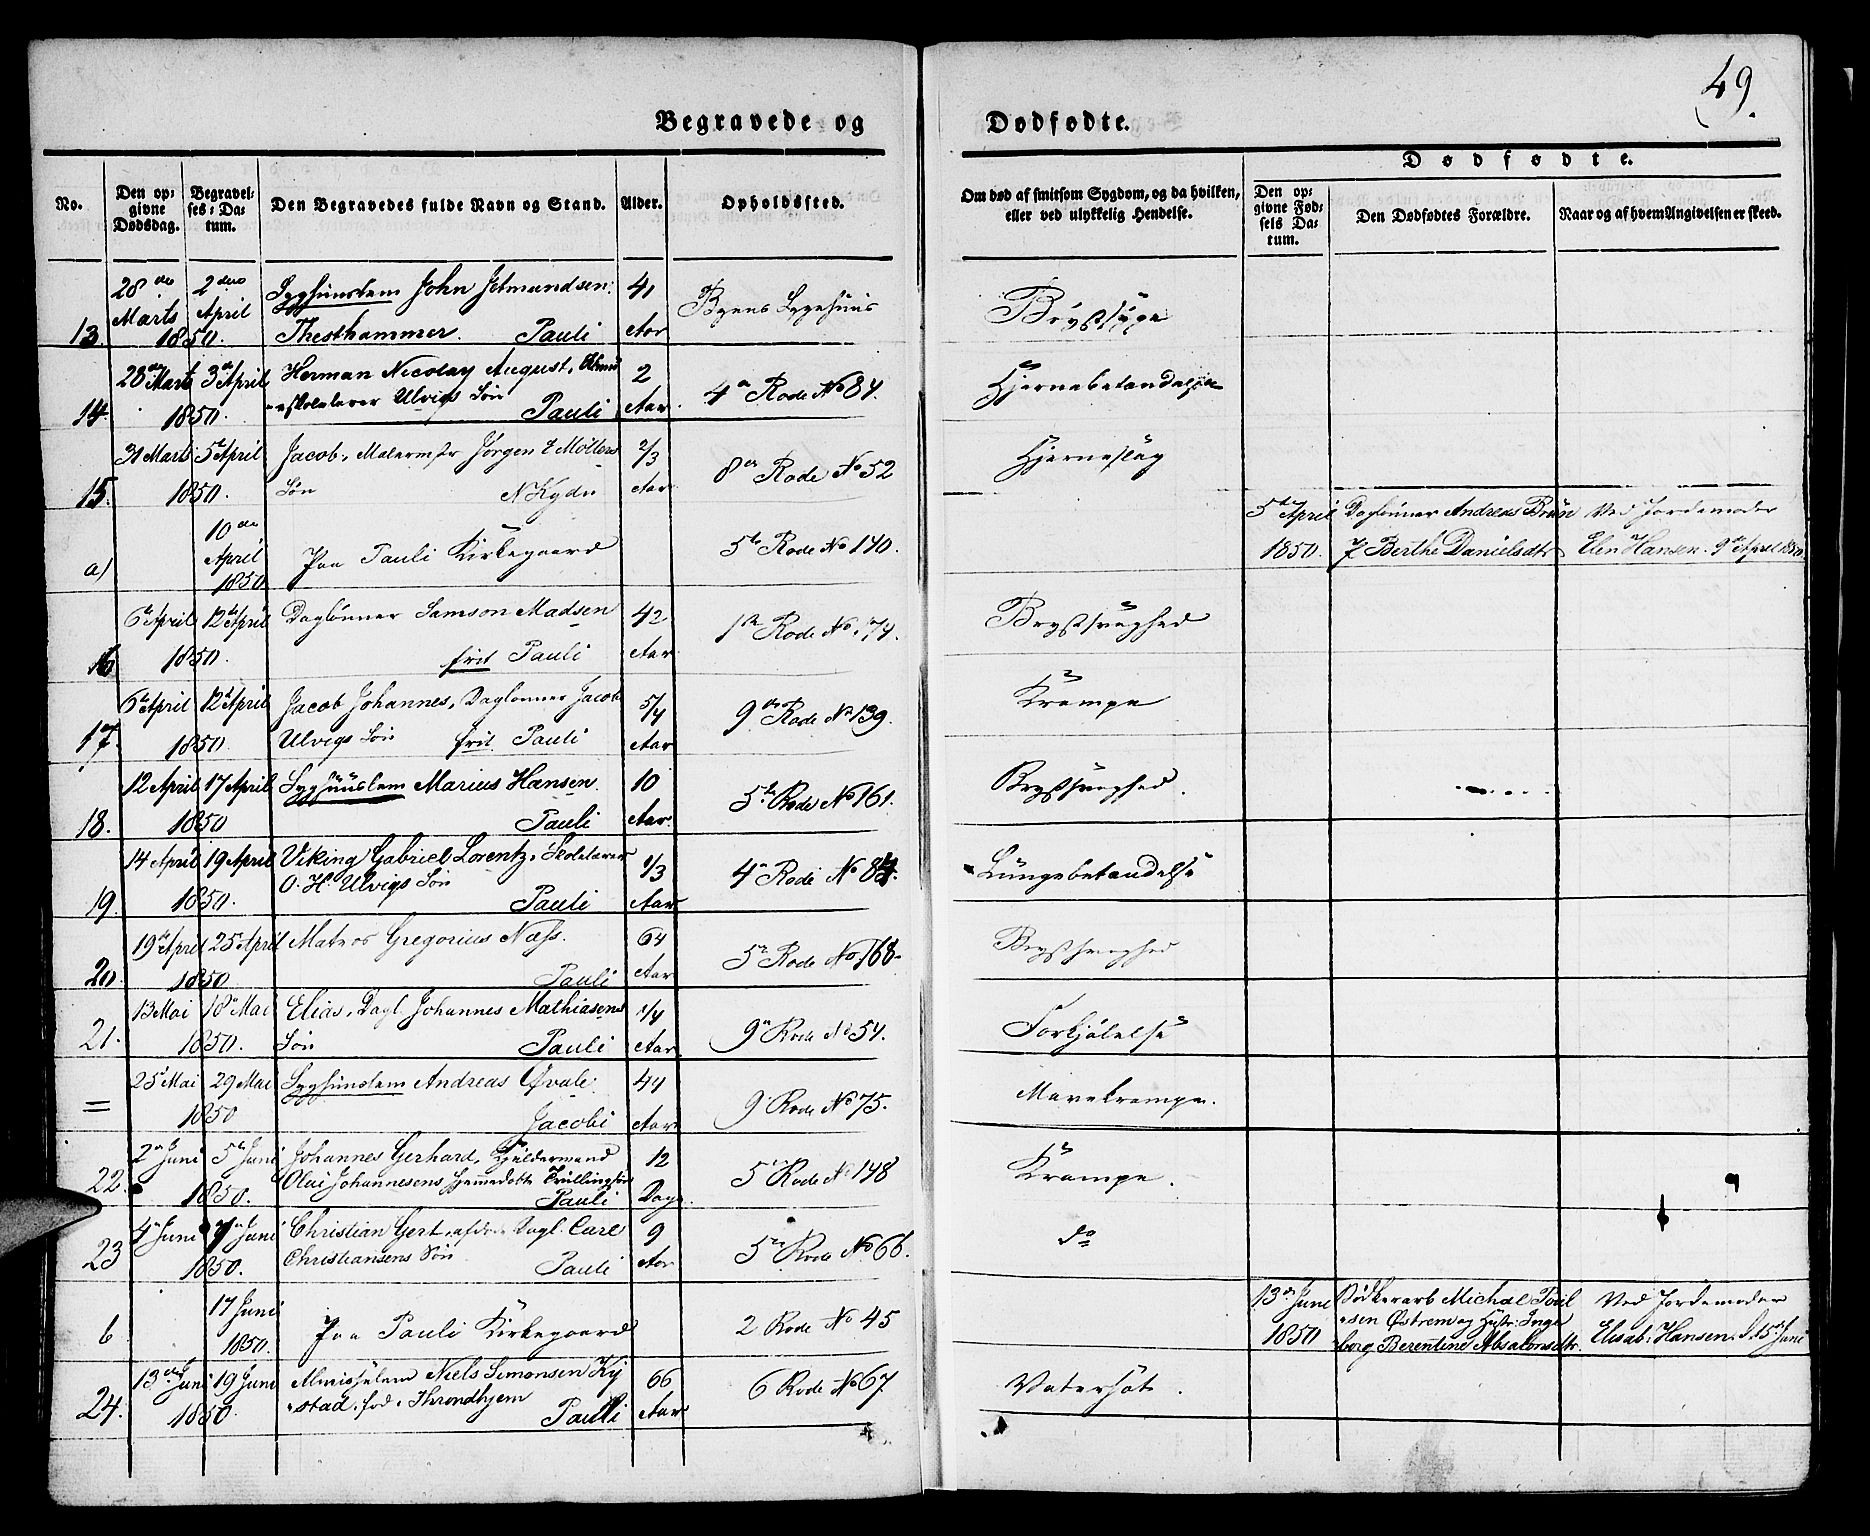 49.
Begravede og Dødfødte.
Dødfødte.
No.
Den op=
givne
Dødsdag.
Begravel=
ses=Da=
tum.
Den Begravedes fulde Navn og Stand.
Alder.
Opholdssted.
Om død af smitsom Sygdom, og da hvilken,
eller ved ulykkelig Hendelse.
Den op=
givne Fød=
sels Da=
tum.
Den Dødfødtes Forældre.
Naar og af hvem Angivelsen er skeed.
28de 2den Syghuuslem John Jetmundsen 41 Byens Sygehuus Brystsyge
Marts April
13. 1850. Thesthammer. Pauli Aar
28de Marts 3die April Herman Nicolay August, Almu 2 4de Rode No 84. Hjernebetændelse
14. 1850. =eskolelærer Ulvigs Søn Pauli Aar.
31 Marts 5te April Jacob, Malermstr Jørgen E Møllers 2/3 8de Rode No 52 Hjerneslag
15. 1850. Søn Aar
10de
April Paa Pauli Kirkegaard 5te Rode No 140. 5te April Daglønner Andreas Bruse Ved Jordemoder
a) 1850 1850. & Berthe Danielsdtr Elen Hansen. 9de April 1850.
6te April 12te April Daglønner Samson Madsen 42 1ste Rode No. 74. Brystsvaghed
16 1850. frit Pauli Aar
6te April 12te April Jacob Johannes, Daglønner Jacob 5/4 9de Rode No 139. Krampe
17. 1850. Ulvigs Søn frit Pauli Aar
12 April 17 April Syghuuslem Marius Hansen. 10 5te Rode No 161. Brystsvaghed.
18. 1850 Pauli Aar.
14 April 19 April Viking Gabriel Lorentz, Skolelærer 1/3 4de Rode No 84. Lungebetændelse
19. 1850. O. H. Ulvigs Søn Pauli Aar
19de April 25 April Matros Gregorius Næss. 64 5te Rode No 168. Brystsvaghed
20. 1850 Pauli Aar
13 Mai 18de Mai Elias, Dagl. Johannes Mathiasens 1/4 9de Rode No 54. Forkjølelse
21. 1850. Søn Pauli Aar.
25 Mai 29 Mai Syghuuslem Andreas Qvale. 44 9 Rode No 75. Mavekrampe.
= 1850 Jacobi Aar
2den Juni 5te Juni Johannes Gerhard, Huldermand 12 5te Rode No 148 Krampe.
22. 1850. Olai Johannesens hjemmedøbte Trillingsøn Pauli Dage.
4de Juni 7de Juni Christian Gert, afdøde Dagl. Carl 9 5te Rode No 66. do
23 1850. Christiansens Søn Pauli Aar
17 Juni 13de June Bødkerarb Michal Toril Ved Jordemoder
Paa Pauli Kirkegaard 2 Rode No 45 =sen Østrem og Hustr: Inge
b 1850. 1850 borg Berentine Absalonsdtr. Elisab: Hansen, d. 15de Juni
13de Juni 19 Juni Almisselem Niels Simonsen Ky 66 6 Rode No 67. Vatersot.
24. 1850. =stad, fød i Throndhjem Pauli Aar